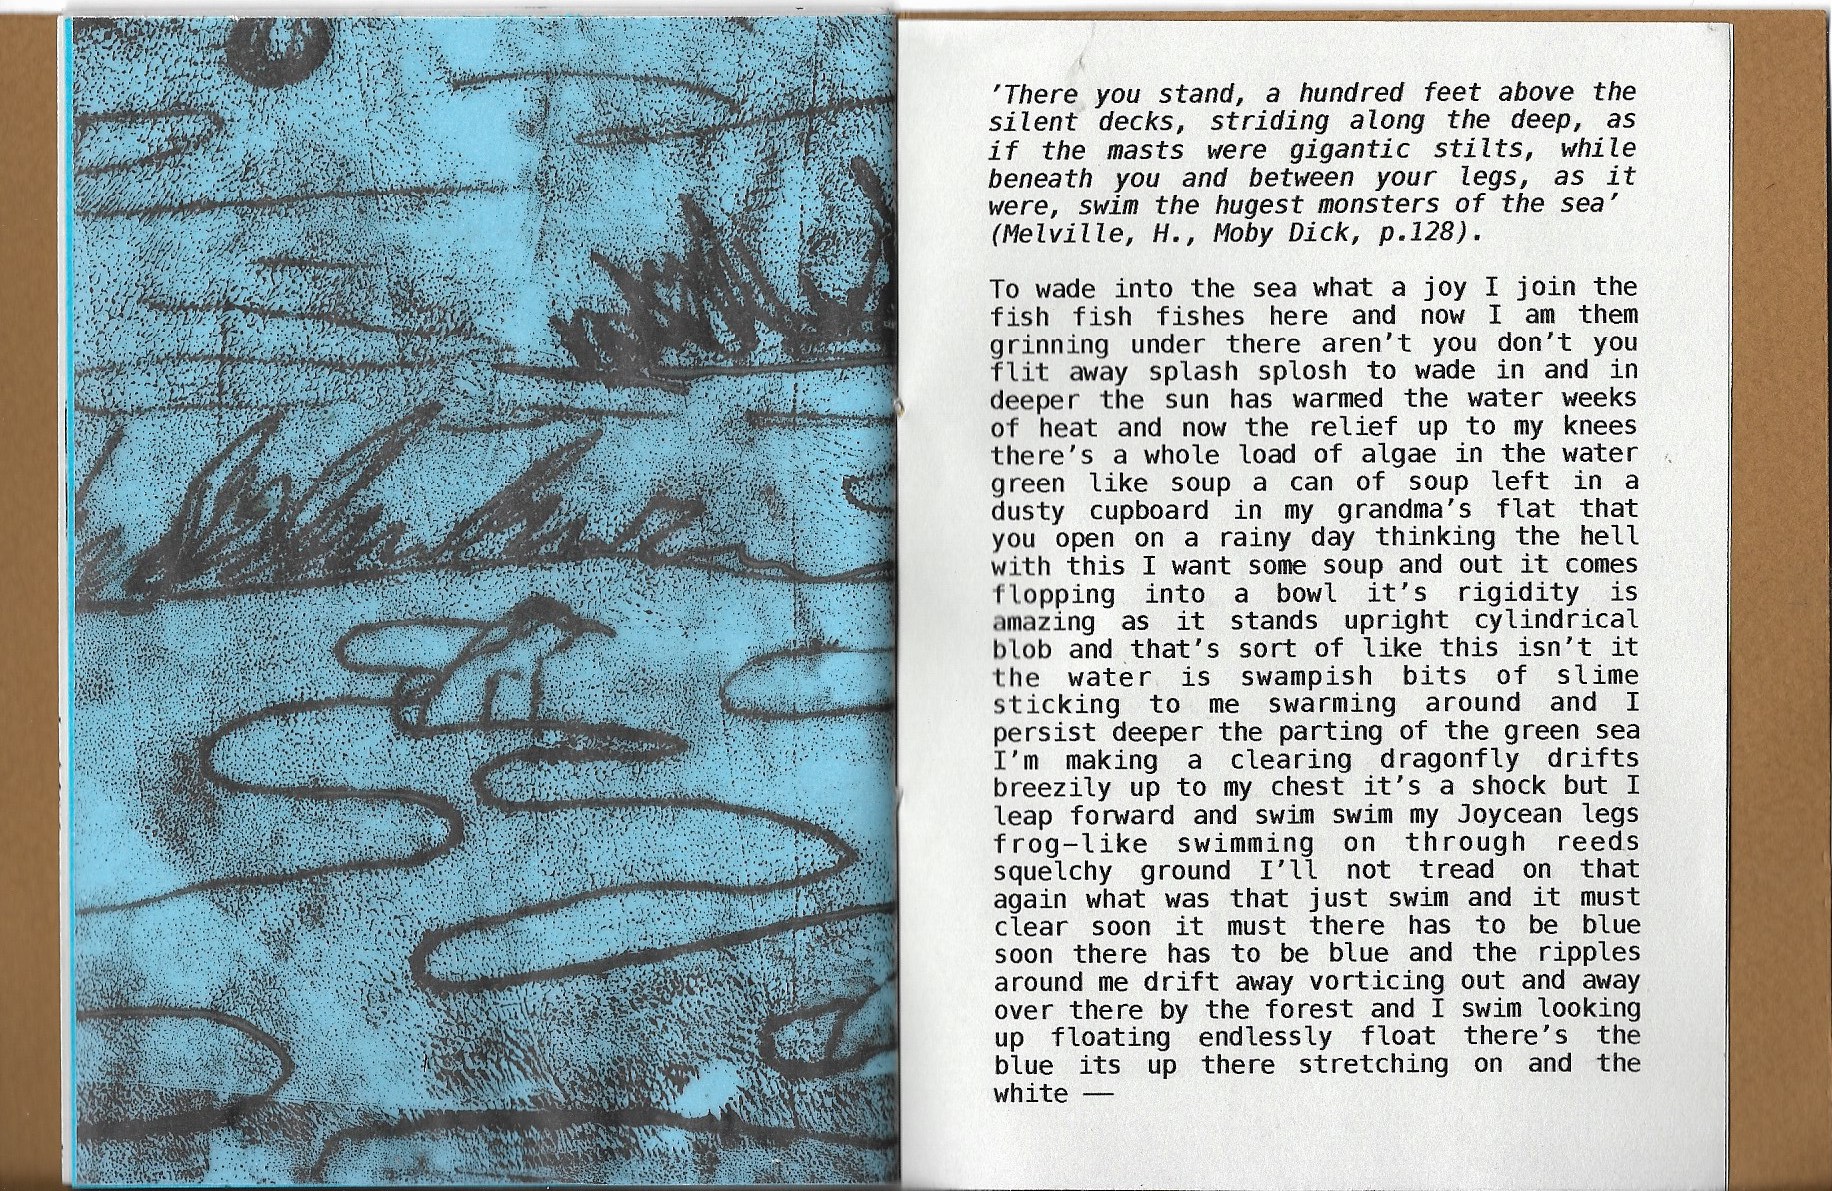 'There you stand, a hundred feet above the
silent decks, striding along the deep, as
if the masts were gigantic stilts, while
beneath you and between your legs, as it
were, swim the hugest monsters of the sea'
(Melville, H., Moby Dick, p.128).
To wade into the sea what a joy I join the
fish fish fishes here and now I am them
grinning under there aren't you don't you
flit away splash splosh to wade in and in
deeper the sun has warmed the water weeks
of heat and now the relief up to my knees
there's a whole load of algae in the water
green like soup a can of soup left in a
dusty cupboard in my grandma's flat that
you open on a rainy day thinking the hell
with this I want some soup and out it comes
flopping into a bowl it's rigidity is
amazing as it stands upright cylindrical
blob and that's sort of like this isn't it
the water is swampish bits of slime
sticking to me swarming around and I
persist deeper the parting of the green sea
I'm making a clearing dragonfly drifts
breezily up to my chest it's a shock but I
leap forward and swim swim my Joycean legs
frog–like swimming on through reeds
squelchy ground I'll not tread on that
again what was that just swim and it must
clear soon it must there has to be blue
soon there has to be blue and the ripples
around me drift away vorticing out and away
over there by the forest and I swim looking
up floating endlessly float there's the
blue its up there stretching on and the
white —